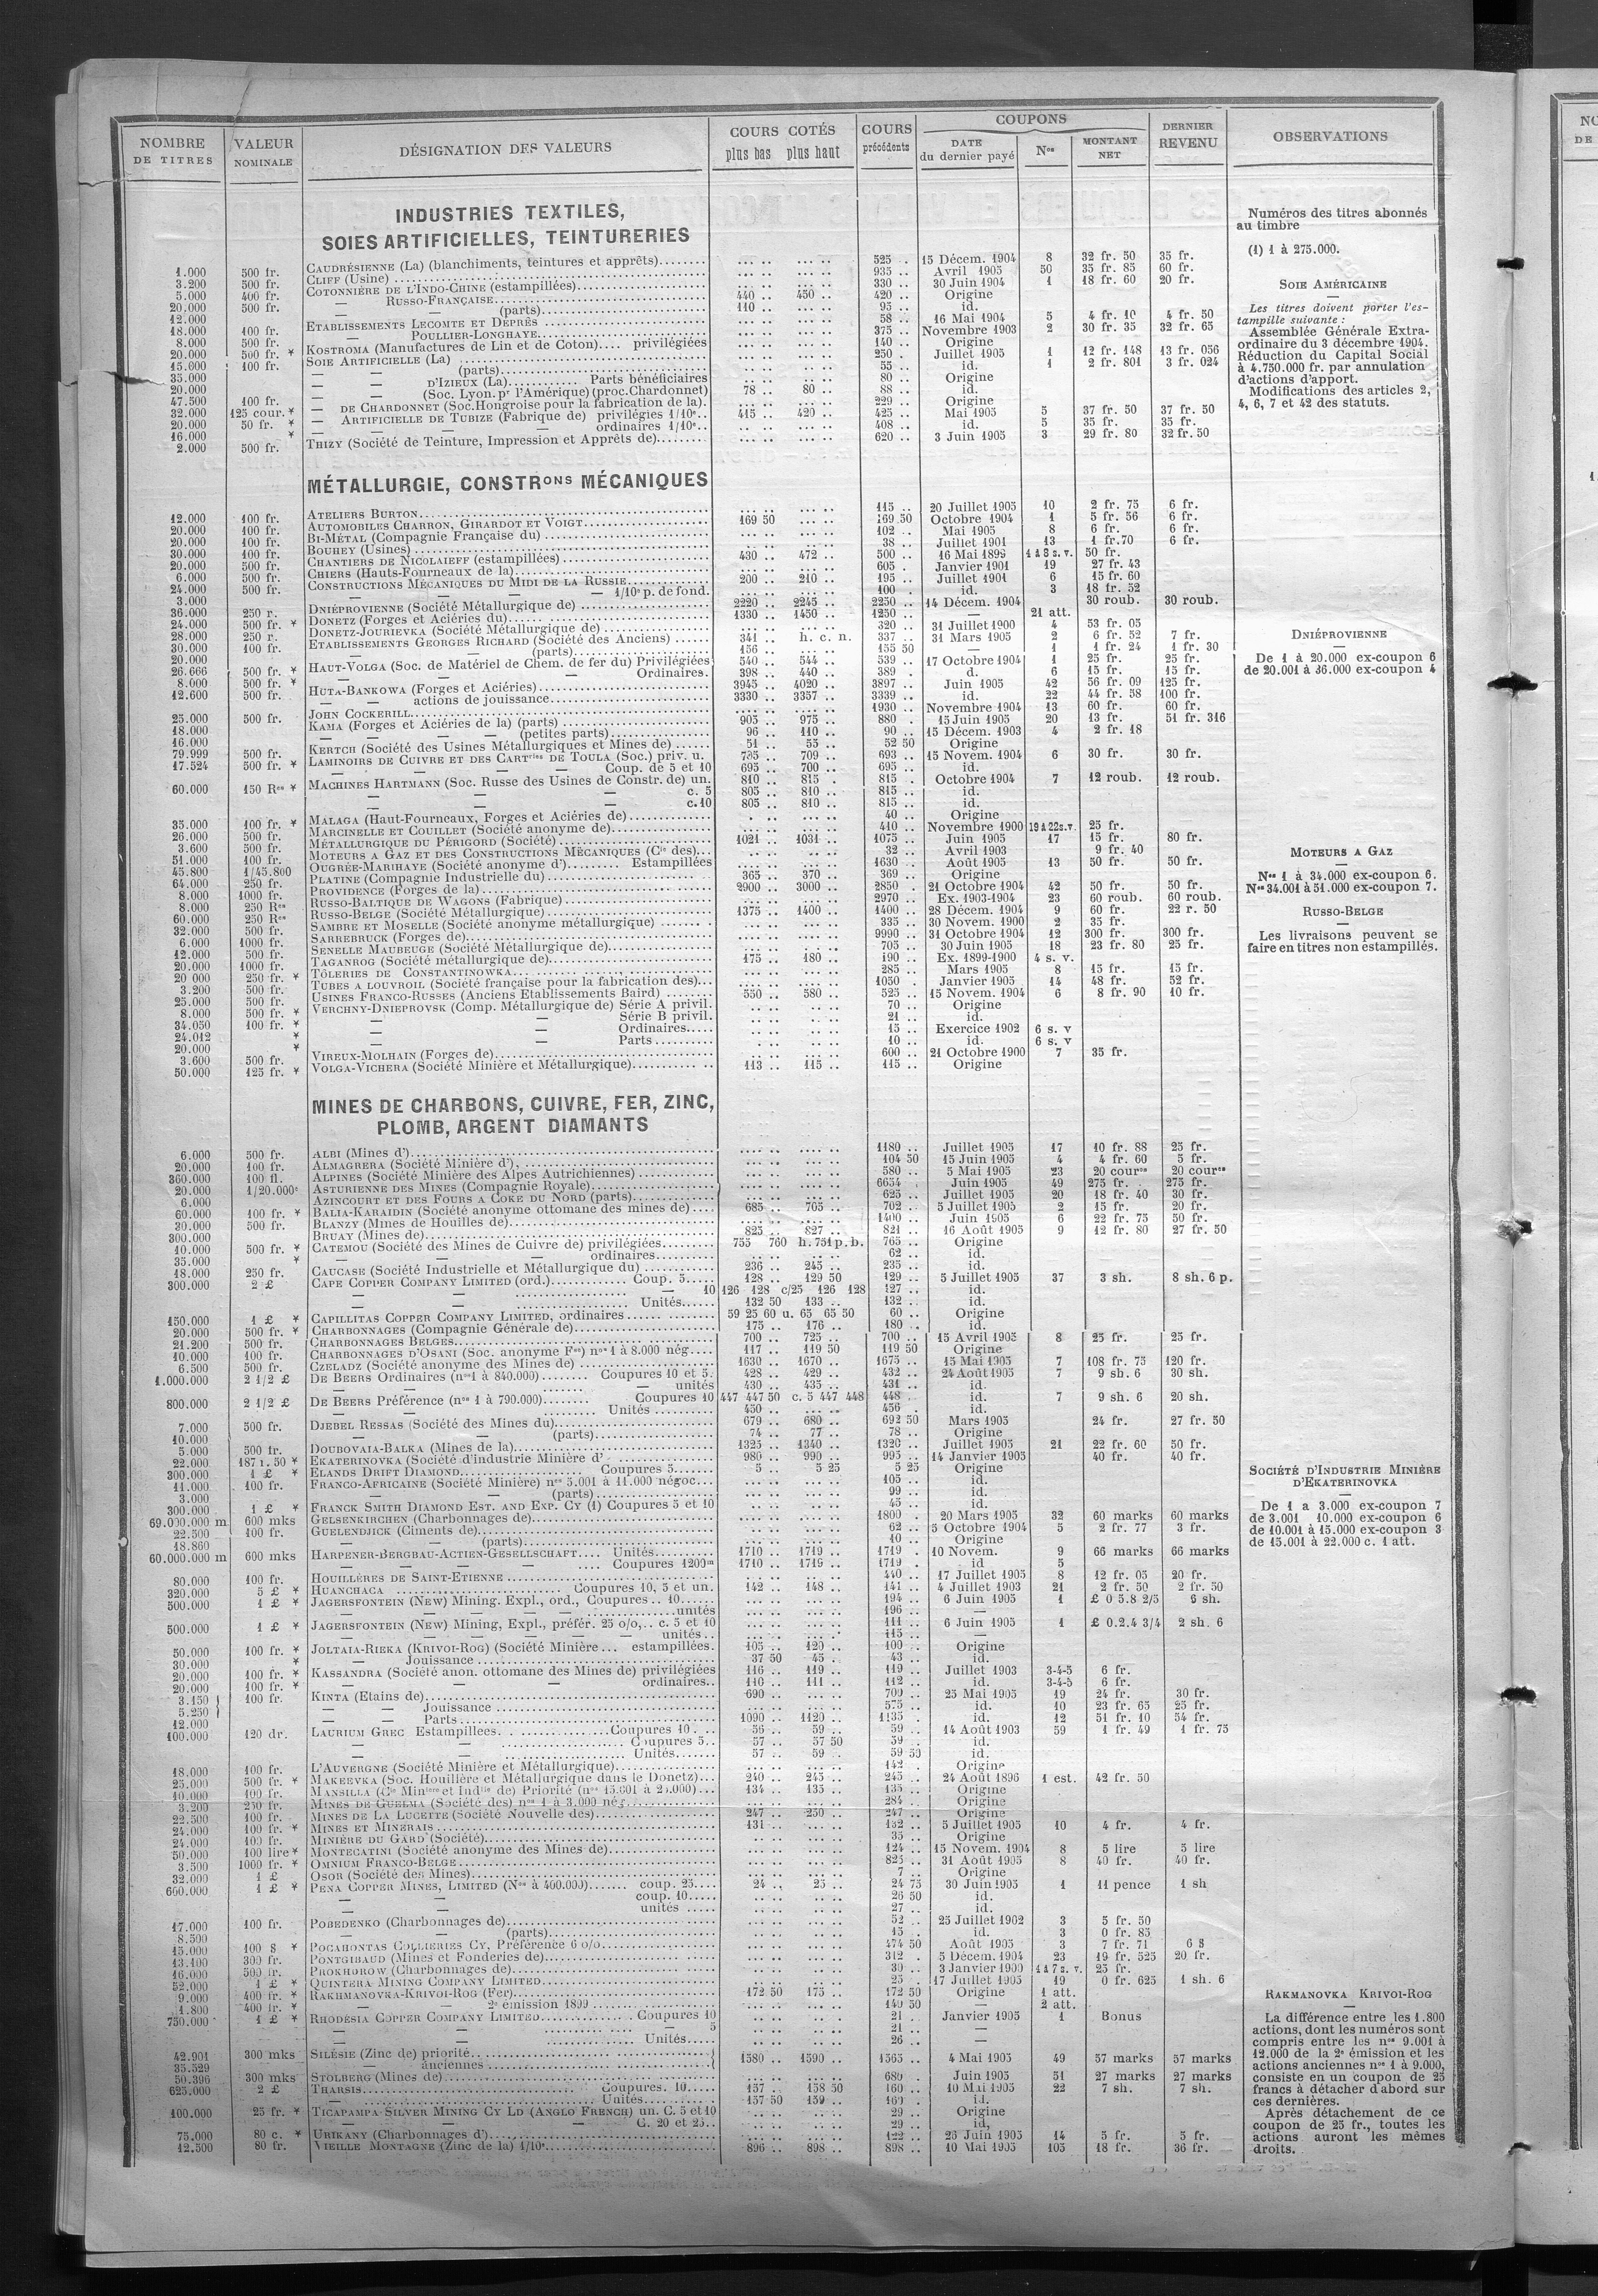 NOMBRE DE TITRES | VALEUR NOMINALE | DÉSIGNATION DES VALEURS | COURS COTÉS plus bas plus haut | COURS précédents | COUPONS DATE du dernier payé | Nos | MONTANT NET | DERNIER REVENU | OBSERVATIONS
INDUSTRIES TEXTILES,
SOIES ARTIFICIELLES, TEINTURERIES
1.000 500 fr. CAUDRÉSIENNE (La) (blanchiments, teintures et apprêts) 525 15 Décem. 1904 8 32 fr. 50 35 fr.
3.200 500 fr. CLIFF (Usine) 935 Avril 1905 50 35 fr. 85 60 fr.
5.000 400 fr. COTONNIÈRE DE L'INDO-CHINE (estampillées) 330 30 Juin 1904 1 18 fr. 60 20 fr.
20.000 500 fr. — RUSSO-FRANÇAISE 440 450 420 Origine
12.000 — (parts) 110 95 id.
18.000 100 fr. ETABLISSEMENTS LECOMTE ET DEPRÈS 58 16 Mai 1904 5 4 fr. 10 4 fr. 50
8.000 500 fr. — POULLIER-LONGHAYE 375 Novembre 1903 2 30 fr. 35 32 fr. 65
20.000 500 fr. * KOSTROMA (Manufactures de Lin et de Coton) privilégiées 140 Origine
15.000 100 fr. SOIE ARTIFICIELLE (La) 250 Juillet 1905 1 12 fr. 148 13 fr. 056
35.000 — — (parts) 55 id. 1 2 fr. 801 3 fr. 024
20.000 — — D'IZIEUX (La) Parts bénéficiaires 80 Origine
47.500 100 fr. — — (Soc. Lyon. pr l'Amérique) (proc. Chardonnet) 78 80 88 id.
32.000 125 cour. * — DE CHARDONNET (Soc. Hongroise pour la fabrication de la). 229 Origine
20.000 50 fr. * — ARTIFICIELLE DE TUBIZE (Fabrique de) privilégies 1/10e 415 420 425 Mai 1905 5 37 fr. 50 37 fr. 50
16.000 * — — — ordinaires 1/10e 408 id. 5 35 fr. 35 fr.
2.000 500 fr. THIZY (Société de Teinture, Impression et Apprêts de) 620 3 Juin 1905 3 29 fr. 80 32 fr. 50
Numéros des titres abonnés
au timbre
(1) 1 à 275.000.
SOIE AMÉRICAINE
Les titres doivent porter l'es-
tampille suivante :
Assemblée Générale Extra-
ordinaire du 3 décembre 1904.
Réduction du Capital Social
à 4.750.000 fr. par annulation
d'actions d'apport.
Modifications des articles 2,
4, 6, 7 et 42 des statuts.
MÉTALLURGIE, CONSTRONS MÉCANIQUES
12.000 100 fr. ATELIERS BURTON 115 20 Juillet 1905 10 2 fr. 75 6 fr.
20.000 100 fr. AUTOMOBILES CHARRON, GIRARDOT ET VOIGT 169 50 169 50 Octobre 1904 1 5 fr. 56 6 fr.
20.000 100 fr. BI-MÉTAL (Compagnie Française du) 102 Mai 1905 8 6 fr. 6 fr.
30.000 100 fr. BOUHEY (Usines) 38 Juillet 1901 13 1 fr. 70 6 fr.
20.000 500 fr. CHANTIERS DE NICOLAIEFF (estampillées) 430 472 500 16 Mai 1899 1 à 8 s. v. 50 fr.
6.000 500 fr. CHIERS (Hauts-Fourneaux de la) 605 Janvier 1901 19 27 fr. 43
24.000 500 fr. CONSTRUCTIONS MÉCANIQUES DU MIDI DE LA RUSSIE 200 210 195 Juillet 1901 6 15 fr. 60
3.000 — — — 1/10e p. de fond. 100 id. 3 18 fr. 52
36.000 250 r. DNIÉPROVIENNE (Société Métallurgique de) 2220 2245 2250 14 Décem. 1904 30 roub. 30 roub.
24.000 500 fr. * DONETZ (Forges et Aciéries du) 1330 1450 1250 — 21 att.
28.000 250 r. DONETZ-JOURIEVKA (Société Métallurgique de) 320 31 Juillet 1900 4 53 fr. 05
30.000 100 fr. ETABLISSEMENTS GEORGES RICHARD (Société des Anciens) 341 h. c. n. 337 31 Mars 1905 2 6 fr. 52 7 fr.
20.000 — — (parts) 156 155 50 — 1 1 fr. 24 1 fr. 30
26.666 500 fr. * HAUT-VOLGA (Soc. de Matériel de Chem. de fer du) Privilégiées 540 544 539 17 Octobre 1904 1 25 fr. 25 fr.
8.000 500 fr. * — — — Ordinaires. 398 440 389 d. 6 15 fr. 15 fr.
12.600 500 fr. HUTA-BANKOWA (Forges et Aciéries) 3945 4020 3897 Juin 1905 42 56 fr. 09 125 fr.
— — actions de jouissance 3330 3357 3339 id. 22 44 fr. 58 100 fr.
25.000 500 fr. JOHN COCKERILL 1930 Novembre 1904 13 60 fr. 60 fr.
18.000 KAMA (Forges et Aciéries de la) (parts) 905 975 880 15 Juin 1905 20 13 fr. 51 fr. 316
16.000 — — — (petites parts) 96 110 90 15 Décem. 1903 4 2 fr. 18
79.999 500 fr. KERTCH (Société des Usines Métallurgiques et Mines de) 51 55 52 50 Origine
17.524 500 fr. * LAMINOIRS DE CUIVRE ET DES CARTries DE TOULA (Soc.) priv. u. 709 693 15 Novem. 1904 6 30 fr. 30 fr.
— — — Coup. de 5 et 10 695 700 695 id.
60.000 150 Res * MACHINES HARTMANN (Soc. Russe des Usines de Constr. de) un. 810 815 815 Octobre 1904 7 12 roub. 12 roub.
— — — c. 5 805 810 815 id.
— — — c. 10 805 810 815 id.
35.000 100 fr. * MALAGA (Haut-Fourneaux, Forges et Aciéries de) 40 Origine
26.000 500 fr. MARCINELLE ET COUILLET (Société anonyme de) 410 Novembre 1900 19 à 22 s.v. 25 fr.
3.600 500 fr. MÉTALLURGIQUE DU PÉRIGORD (Société) 1021 1031 1075 Juin 1905 17 15 fr. 80 fr.
51.000 100 fr. MOTEURS A GAZ ET DES CONSTRUCTIONS MÉCANIQUES (Cie des) 32 Avril 1903 9 fr. 40
45.800 1/45.800 OUGRÉE-MARIHAYE (Société anonyme d') Estampillées 1630 Août 1905 13 50 fr. 50 fr.
64.000 250 fr. PLATINE (Compagnie Industrielle du) 365 370 369 Origine
8.000 1000 fr. PROVIDENCE (Forges de la) 2900 3000 2850 21 Octobre 1904 42 50 fr. 50 fr.
8.000 250 Res RUSSO-BALTIQUE DE WAGONS (Fabrique) 2970 Ex. 1903-1904 23 60 roub. 60 roub.
60.000 250 Res RUSSO-BELGE (Société Métallurgique) 1375 1400 1400 28 Décem. 1904 9 60 fr. 22 r. 50
32.000 500 fr. SAMBRE ET MOSELLE (Société anonyme métallurgique) 335 30 Novem. 1900 2 35 fr.
6.000 1000 fr. SARREBRUCK (Forges de) 9990 31 Octobre 1904 12 300 fr. 300 fr.
12.000 500 fr. SENELLE MAUBEUGE (Société Métallurgique de) 705 30 Juin 1905 18 23 fr. 80 25 fr.
20.000 1000 fr. TAGANROG (Société métallurgique de) 175 180 190 Ex. 1899-1900 4 s. v.
20 000 250 fr. * TÔLERIES DE CONSTANTINOWKA 285 Mars 1905 8 15 fr. 15 fr.
3.200 500 fr. TUBES A LOUVROIL (Société française pour la fabrication des) 1050 Janvier 1905 14 48 fr. 52 fr.
25.000 500 fr. USINES FRANCO-RUSSES (Anciens Etablissements Baird) 550 580 525 15 Novem. 1904 6 8 fr. 90 10 fr.
8.000 500 fr. * VERCHNY-DNIEPROVSK (Comp. Métallurgique de) Série A privil. 70 Origine
34.050 100 fr. * — — Série B privil. 21 id.
24.012 * — — Ordinaires 15 Exercice 1902 6 s. v
20.000 * — — Parts 10 id. 6 s. v
3.600 500 fr. VIREUX-MOLHAIN (Forges de) 600 21 Octobre 1900 7 35 fr.
50.000 125 fr. * VOLGA-VICHERA (Société Minière et Métallurgique) 113 115 115 Origine
DNIÉPROVIENNE
De 1 à 20.000 ex-coupon 6
de 20.001 à 36.000 ex-coupon 4
MOTEURS A GAZ
Nos 1 à 34.000 ex-coupon 6.
Nos 34.001 à 51.000 ex-coupon 7.
RUSSO-BELGE
Les livraisons peuvent se
faire en titres non estampillés.
MINES DE CHARBONS, CUIVRE, FER, ZINC,
PLOMB, ARGENT DIAMANTS
6.000 500 fr. ALBI (Mines d') 1180 Juillet 1905 17 10 fr. 88 25 fr.
20.000 100 fr. ALMAGRERA (Société Minière d') 104 50 15 Juin 1905 4 4 fr. 60 5 fr.
360.000 100 fl. ALPINES (Société Minière des Alpes Autrichiennes) 580 5 Mai 1905 23 20 coures 20 coures
20.000 1/20.000e ASTURIENNE DES MINES (Compagnie Royale) 6654 Juin 1905 49 275 fr. 275 fr.
6.000 AZINCOURT ET DES FOURS A COKE DU NORD (parts) 625 Juillet 1905 20 18 fr. 40 30 fr.
60.000 100 fr. * BALIA-KARAIDIN (Société anonyme ottomane des mines de) 685 705 702 5 Juillet 1905 2 15 fr. 20 fr.
30.000 500 fr. BLANZY (Mines de Houilles de) 1400 Juin 1905 6 22 fr. 75 50 fr.
300.000 BRUAY (Mines de) 825 827 821 16 Août 1905 9 12 fr. 80 27 fr. 50
10.000 500 fr. * CATEMOU (Société des Mines de Cuivre de) privilégiées 755 760 h. 751 p. b. 765 Origine
35.000 * — — ordinaires 62 id.
18.000 250 fr. CAUCASE (Société Industrielle et Métallurgique du) 236 245 235 id.
300.000 2 £ CAPE COPPER COMPANY LIMITED (ord.) Coup. 5 128 129 50 129 5 Juillet 1905 37 3 sh. 8 sh. 6 p.
— — — 10 126 128 c/25 126 128 127 id.
— — Unités 132 50 133 132 id.
150.000 1 £ * CAPILLITAS COPPER COMPANY LIMITED, ordinaires 59 25 60 u. 65 65 50 60 Origine
20.000 500 fr. * CHARBONNAGES (Compagnie Générale de) 175 176 180 id.
21.200 500 fr. CHARBONNAGES BELGES 700 725 700 15 Avril 1905 8 25 fr. 25 fr.
10.000 100 fr. CHARBONNAGES D'OSANI (Soc. anonyme Fse) nos 1 à 8.000 nég. 117 119 50 119 50 Origine
6.500 500 fr. CZELADZ (Société anonyme des Mines de) 1630 1670 1675 15 Mai 1905 7 108 fr. 75 120 fr.
1.000.000 2 1/2 £ DE BEERS Ordinaires (nos 1 à 840.000) Coupures 10 et 5. 428 429 432 24 Août 1905 7 9 sh. 6 30 sh.
— — — unités 430 435 431 id.
800.000 2 1/2 £ DE BEERS Préférence (nos 1 à 790.000) Coupures 10 447 447 50 c. 5 447 448 448 id. 7 9 sh. 6 20 sh.
— — Unités 450 456 id.
7.000 500 fr. DJEBEL RESSAS (Société des Mines du) 679 680 692 50 Mars 1905 24 fr. 27 fr. 50
10.000 — — (parts) 74 77 78 Origine
5.000 500 fr. DOUBOVAIA-BALKA (Mines de la) 1325 1340 1320 Juillet 1905 21 22 fr. 60 50 fr.
22.000 187 r. 50 * EKATERINOVKA (Société d'industrie Minière d' 980 990 995 14 Janvier 1905 40 fr. 40 fr.
300.000 1 £ * ELANDS DRIFT DIAMOND Coupures 5 5 5 25 5 25 Origine
11.000 100 fr. FRANCO-AFRICAINE (Société Minière) nos 5.001 à 11.000 négoc. 105 id.
3.000 — — (parts) 99 id.
300.000 1 £ * FRANCK SMITH DIAMOND EST. AND EXP. CY (1) Coupures 5 et 10 45 id.
69.000.000 m 600 mks GELSENKIRCHEN (Charbonnages de) 1800 20 Mars 1905 32 60 marks 60 marks
22.500 100 fr. GUELENDJICK (Ciments de) 62 5 Octobre 1904 5 2 fr. 77 3 fr.
18.860 — — (parts) 10 Origine
60.000.000 m 600 mks HARPENER-BERGBAU-ACTIEN-GESELLSCHAFT Unités 1710 1719 1719 10 Novem. 9 66 marks 66 marks
— — — Coupures 1200m 1710 1719 1719 id 5
80.000 100 fr. HOUILLÈRES DE SAINT-ETIENNE 440 17 Juillet 1905 8 12 fr. 05 20 fr.
320.000 5 £ * HUANCHACA Coupures 10, 5 et un. 142 148 141 4 Juillet 1903 21 2 fr. 50 2 fr. 50
500.000 1 £ * JAGERSFONTEIN (NEW) Mining. Expl., ord., Coupures 10 194 6 Juin 1905 1 £ 0 5.8 2/5 6 sh.
— — — unités 196 —
500.000 1 £ * JAGERSFONTEIN (NEW) Mining, Expl., préfér. 25 o/o, c. 5 et 10 111 6 Juin 1905 1 £ 0.2.4 3/4 2 sh. 6
— — — unités 115 —
50.000 100 fr. * JOLTAIA-RIEKA (KRIVOI-ROG) (Société Minière estampillées. 105 120 100 Origine
30.000 * — — Jouissance 37 50 45 43 id.
20.000 100 fr. * KASSANDRA (Société anon. ottomane des Mines de) privilégiées 116 119 119 Juillet 1903 3-4-5 6 fr.
20.000 100 fr. * — — — ordinaires 110 111 112 id. 3-4-5 6 fr.
3.150 100 fr. KINTA (Etains de) 690 700 25 Mai 1905 19 24 fr. 30 fr.
5.250 — — Jouissance 575 id. 10 23 fr. 65 25 fr.
12.000 — — Parts 1090 1120 1135 id. 12 51 fr. 10 54 fr.
100.000 120 dr. LAURIUM GREC Estampillées Coupures 10 56 59 59 14 Août 1903 59 1 fr. 49 1 fr. 75
— — Coupures 5 57 57 50 59 id.
— — Unités 57 59 59 50 id.
18.000 100 fr. L'AUVERGNE (Société Minière et Métallurgique) 142 Origine
25.000 500 fr. * MAKEEVKA (Soc. Houillère et Métallurgique dans le Donetz) 240 245 245 24 Août 1896 1 est. 42 fr. 50
10.000 100 fr. MANSILLA (Cie Minière et Indlle de) Priorité (nos 15.001 à 25.000) 134 135 135 Origine
3.200 250 fr. MINES DE GUELMA (Société des) nos 1 à 3.000 nég. 284 Origine
22.500 100 fr. MINES DE LA LUCETTE (Société Nouvelle des) 247 250 247 Origine
24.000 100 fr. * MINES ET MINERAIS 131 132 5 Juillet 1905 10 4 fr. 4 fr.
24.000 100 fr. MINIÈRE DU GARD (Société) 35 Origine
50.000 100 lire * MONTECATINI (Société anonyme des Mines de) 124 15 Novem. 1904 8 5 lire 5 lire
3.500 1000 fr. * OMNIUM FRANCO-BELGE 825 31 Août 1905 8 40 fr. 40 fr.
32.000 1 £ OSOR (Société des Mines) 7 Origine
600.000 1 £ * PENA COPPER MINES, LIMITED (Nos à 400.000) coup. 25 24 25 24 75 30 Juin 1905 1 11 pence 1 sh
— — coup. 10 26 50 id.
— — unités 27 id.
17.000 100 fr. POBEDENKO (Charbonnages de) 52 25 Juillet 1902 3 5 fr. 50
8.500 — — (parts) 15 id. 3 0 fr. 85
15.000 100 $ * POCAHONTAS COLLIERIES CY, Préférence 6 o/o 474 50 Août 1905 3 7 fr. 71 6 $
13.100 300 fr. PONTGIBAUD (Mines et Fonderies de) 312 5 Décem. 1904 23 19 fr. 525 20 fr.
16.000 500 fr. PROKHOROW (Charbonnages de) 30 3 Janvier 1900 1 à 7 s. v. 25 fr.
52.000 1 £ * QUINTERA MINING COMPANY LIMITED 25 17 Juillet 1905 19 0 fr. 625 1 sh. 6
9.000 400 fr. * RAKHMANOVKA-KRIVOI-ROG (Fer) 172 50 175 172 50 Origine 1 att.
1.800 400 fr. * — — 2e émission 1899 140 50 — 2 att.
750.000 1 £ * RHODESIA COPPER COMPANY LIMITED Coupures 10 21 Janvier 1905 1 Bonus
— — — 5 21 —
— — Unités 26 —
42.901 300 mks SILÉSIE (Zinc de) priorité 1580 1590 1565 4 Mai 1905 49 57 marks 57 marks
35.529 — anciennes
50.396 300 mks STOLBERG (Mines de) 680 Juin 1905 51 27 marks 27 marks
625.000 2 £ THARSIS Coupures. 10 157 158 50 160 10 Mai 1905 22 7 sh. 7 sh.
— Unités 157 50 159 160 id.
100.000 25 fr. * TICAPAMPA SILVER MINING CY LD (ANGLO FRENCH) un. C. 5 et 10 29 Origine
— — — C. 20 et 25 29 id.
75.000 80 c. * URIKANY (Charbonnages d') 122 25 Juin 1905 14 5 fr. 5 fr.
12.500 80 fr. VIEILLE MONTAGNE (Zinc de la) 1/10e 896 898 898 10 Mai 1905 105 18 fr. 36 fr.
SOCIÉTÉ D'INDUSTRIE MINIÈRE
D'EKATERINOVKA
De 1 a 3.000 ex-coupon 7
de 3.001 10.000 ex-coupon 6
de 10.001 à 15.000 ex-coupon 3
de 15.001 à 22.000 c. 1 att.
RAKMANOVKA KRIVOI-ROG
La différence entre les 1.800
actions, dont les numéros sont
compris entre les nos 9.001 à
12.000 de la 2e émission et les
actions anciennes nos 1 à 9.000,
consiste en un coupon de 25
francs à détacher d'abord sur
ces dernières.
Après détachement de ce
coupon de 25 fr., toutes les
actions auront les mêmes
droits.